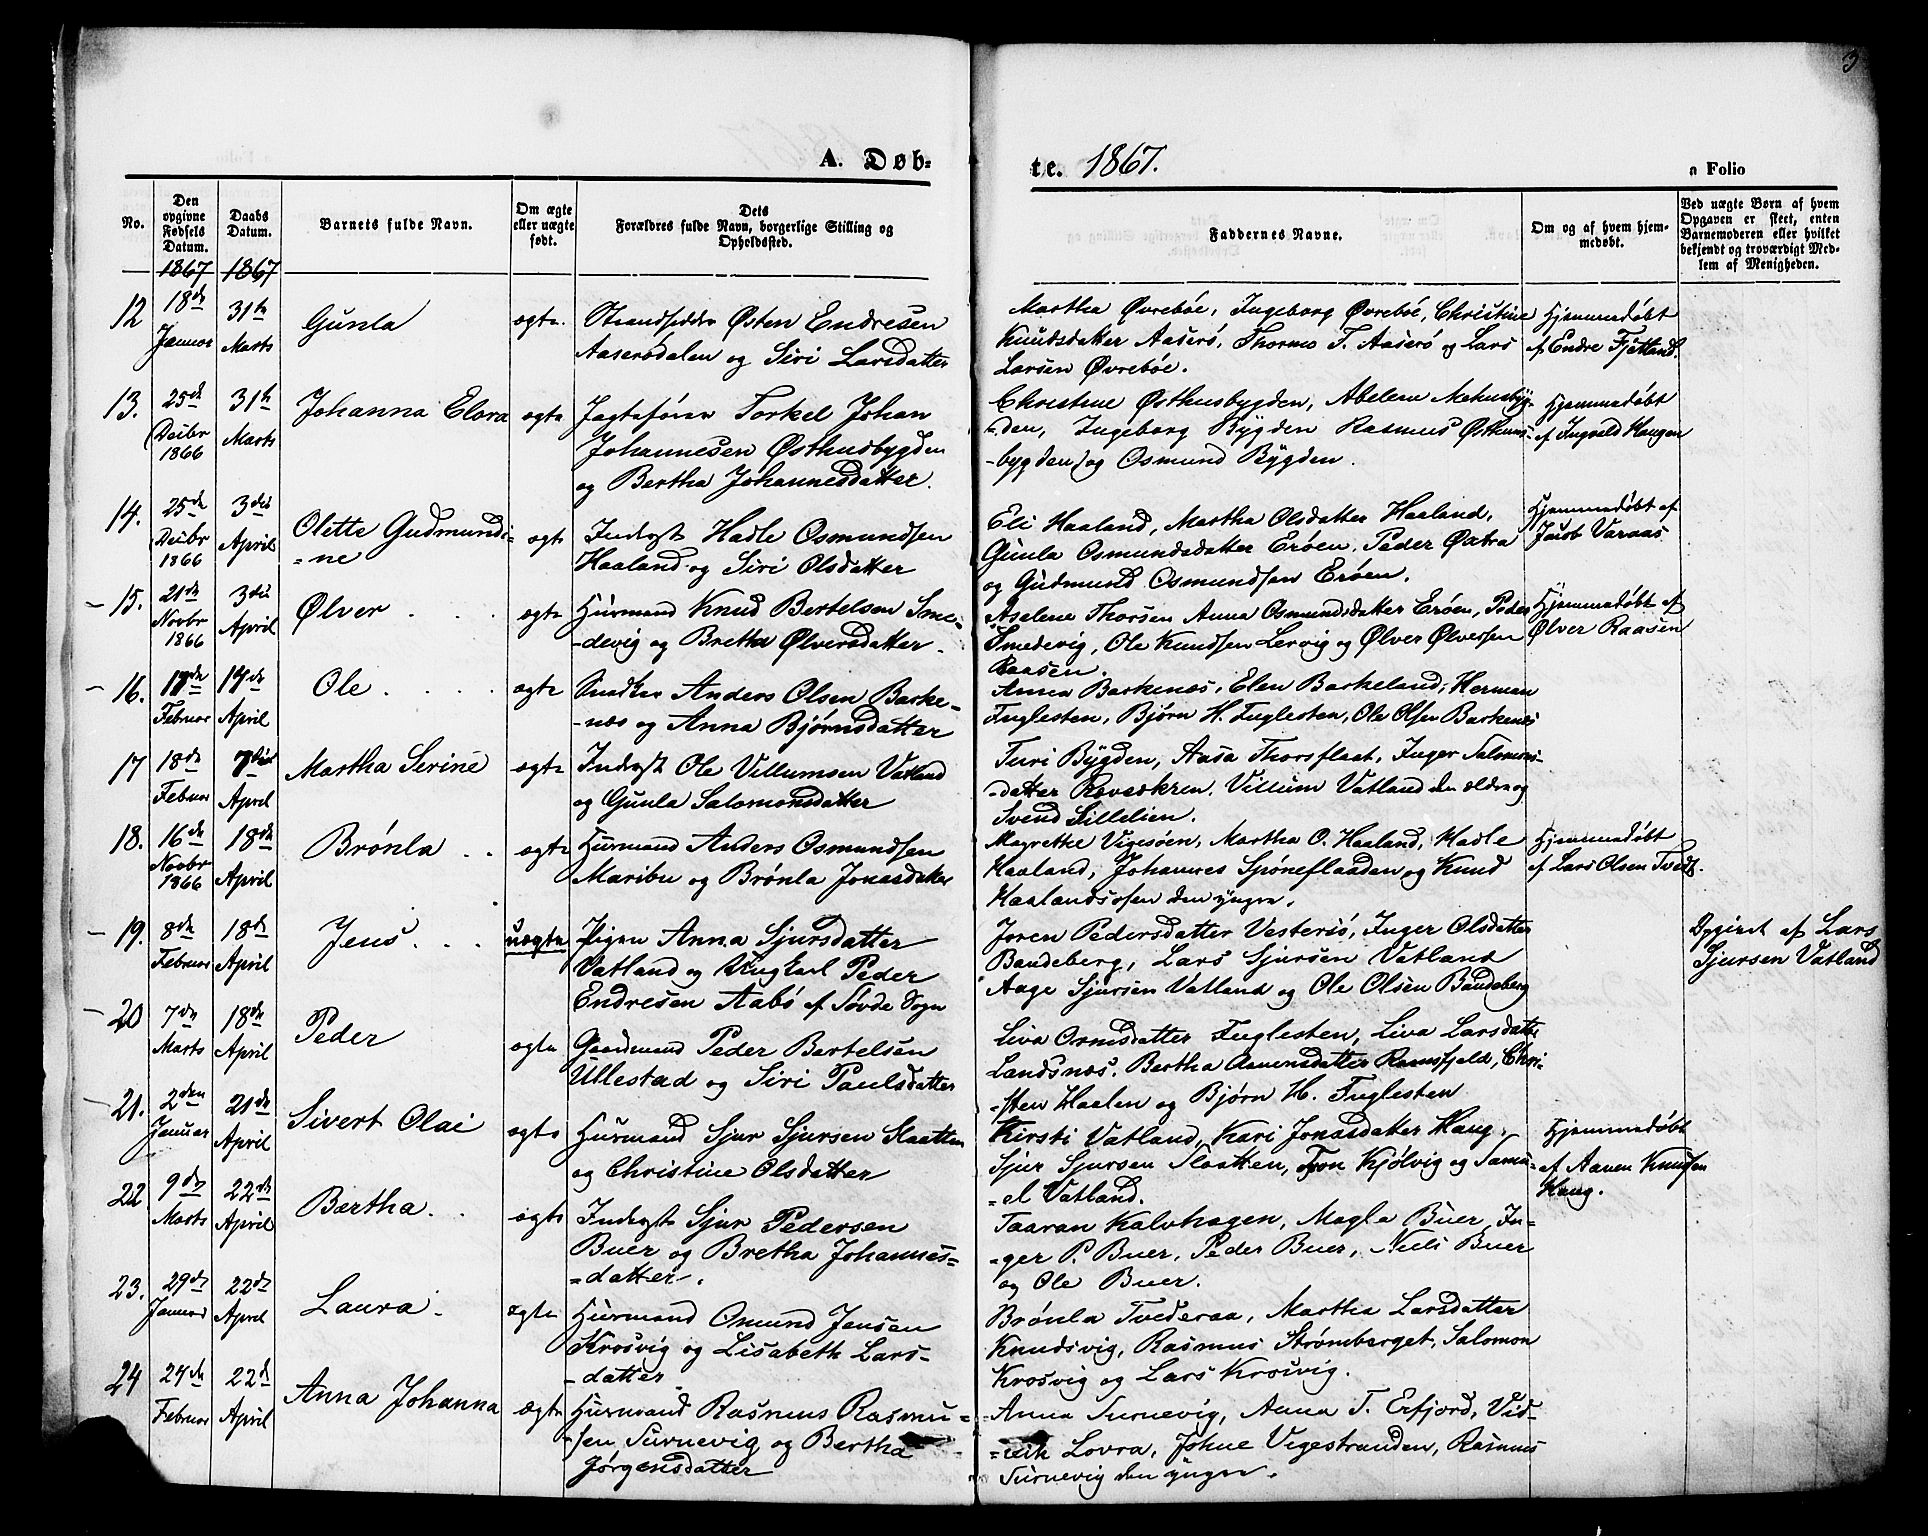 3
A. Døb-
te. 1867.
a Folio
No.
Den opgivne Fødsels Datum.
Daabs Datum.
Barnets fulde Navn.
Om ægte eller uægte født.
Dets Forældres fulde Navn, borgerlige Stilling og Opholdssted.
Faddernes Navne.
Om og af hvem hjemmedøbt.
Ved uægte Børn af hvem Opgaven er skeet, enten Barnemoderen eller hvilket bekjendt og troværdigt Medlem af Menigheden.
1867 1867
12 18de Januar 31te Marts Gunla ægte. Strandsidder Østen Endresen
Aaserødalen og Siri Larsdatter
Martha Øvrebøe, Ingeborg Øvrebøe, Christine
Knudsdatter Aaserø, Thormo T. Aaserø og Lars
Larsen Øvrebøe.
Hjemmedøbt
af Endre Fjetland.
13. 25de Decbr 1866 31te Marts Johanna Elora ægte Jagtefører Torkel Johan
Johannesen Østhusbygden
og Bertha Johannesdatter.
Christine Østhusbygden, Abelene Mehusbyg-
-den, Ingeborg Bygden Rasmus Østhus-
-bygden og Osmund Bygden.
Hjemmedøbt
af Ingvald Haugen
14. 25de Decbr 1866 3die April Olette Gudmundi-
-ne ægte Inderst Hadle Osmundsen
Haaland og Siri Olsdatter
Eli Haaland, Martha Olsdatter Haaland,
Gunla Osmundsdatter Erøen, Peder Østra
og Gudmund Osmundsen Erøen.
Hjemmedøbt af
Jacob Varaas
15. 21de Novbr 1866 3die April Ølver ægte Huusmand Knud Bertelsen Sme-
-devig og Bretha Ølversdatter.
Aselene Thorsen Anna Osmundsdatter Erøen, Peder
Smedevig, Ole Knudsen Lervig og Ølver Ølversen
Raasen.
Hjemmedøbt af
Ølver Raasen
16. 17de Februar April Ole ægte Snedker Anders Olsen Barke-
-næs og Anna Bjørnsdatter
Anna Barkenæs, Elen Barkeland, Herman
Fuglesten, Bjørn H. Fuglesten, Ole Olsen Barkenæs
17 18de Februar 7de April Martha Serine ægte Inderst Ole Villumsen Vatland
og Gunla Salomonsdatter
Turi Bygden, Aasa Thorsflaat, Inger Salomons-
-datter Røvsækren, Villum Vatland den ældre og
Svend Lillelien.
18. 16de Novbr 1866 18de April Brønla ægte Huusmand Anders Osmundsen
Maribu og Brønla Jonasdatter
Magrethe Vigesøen, Martha O. Haaland, Hadle
Haaland, Johannes Spøneflaaden og Knud
Haalandsosen den yngre.
Hjemmedøbt
af Lars Olsen Tvedt.
19. 8de Februar 18de April Jens uægte Pigen Anna Sjursdatter
Vatland og Ungkarl Peder
Endresen Aabø af Søvde Sogn
Joren Pedersdatter Vesterø, Inger Olsdatter
Bandeberg, Lars Sjursen Vatland
Aage Sjursen Vatland og Ole Olsen Bandeberg
Opgivet af Lars
Sjursen Vatland
20 7de Marts 18de April Peder ægte Gaardmand Peder Bertelsen
Ullestad og Siri Paulsdatter
Liva Ormsdatter Fuglesten, Liva Larsdatter
Landsnæs, Bertha Aamundsdatter Ramsfjeld, Chri-
-sten Haalen og Bjørn H. Fuglesten
21. 2den Januar 21de April Sivert Olai ægte Huusmand Sjur Sjursen Slaatten
og Christine Olsdatter
Kirsti Vatland, Kari Jonasdatter Haug,
Sjur Sjursen Slaatten, Tron Kjølvig og Samu-
-el Vatland.
Hjemmedøbt
af Aanen Knudsen
Haug.
22 9de Marts 22de April Bertha ægte Inderst Sjur Pedersen
Buer og Bretha Johannes-
-datter.
Taaran Kalvhagen, Magla Buer, In-
-ger P. Buer, Peder Buer, Niels Buer
og Ole Buer.
23. 29de Januar 22de April Laura ægte Huusmand Osmund Jensen
Krosvig og Lisabeth Lars-
-datter
Brønla Tvederaa, Martha Larsdatter
Knudsvig, Rasmus Strømberget, Salomon
Krosvig og Lars Krosvig.
24 24de Februar 22de April Anna Johanna ægte Huusmand Rasmus Rasmu-
-sen Turnevig og Bertha
Jørgensdatter
Anna Turnevig, Anna T. Erfjord, Vid-
-rik Lovra, Johne Vigestranden, Rasmus
Turnevig den yngre.